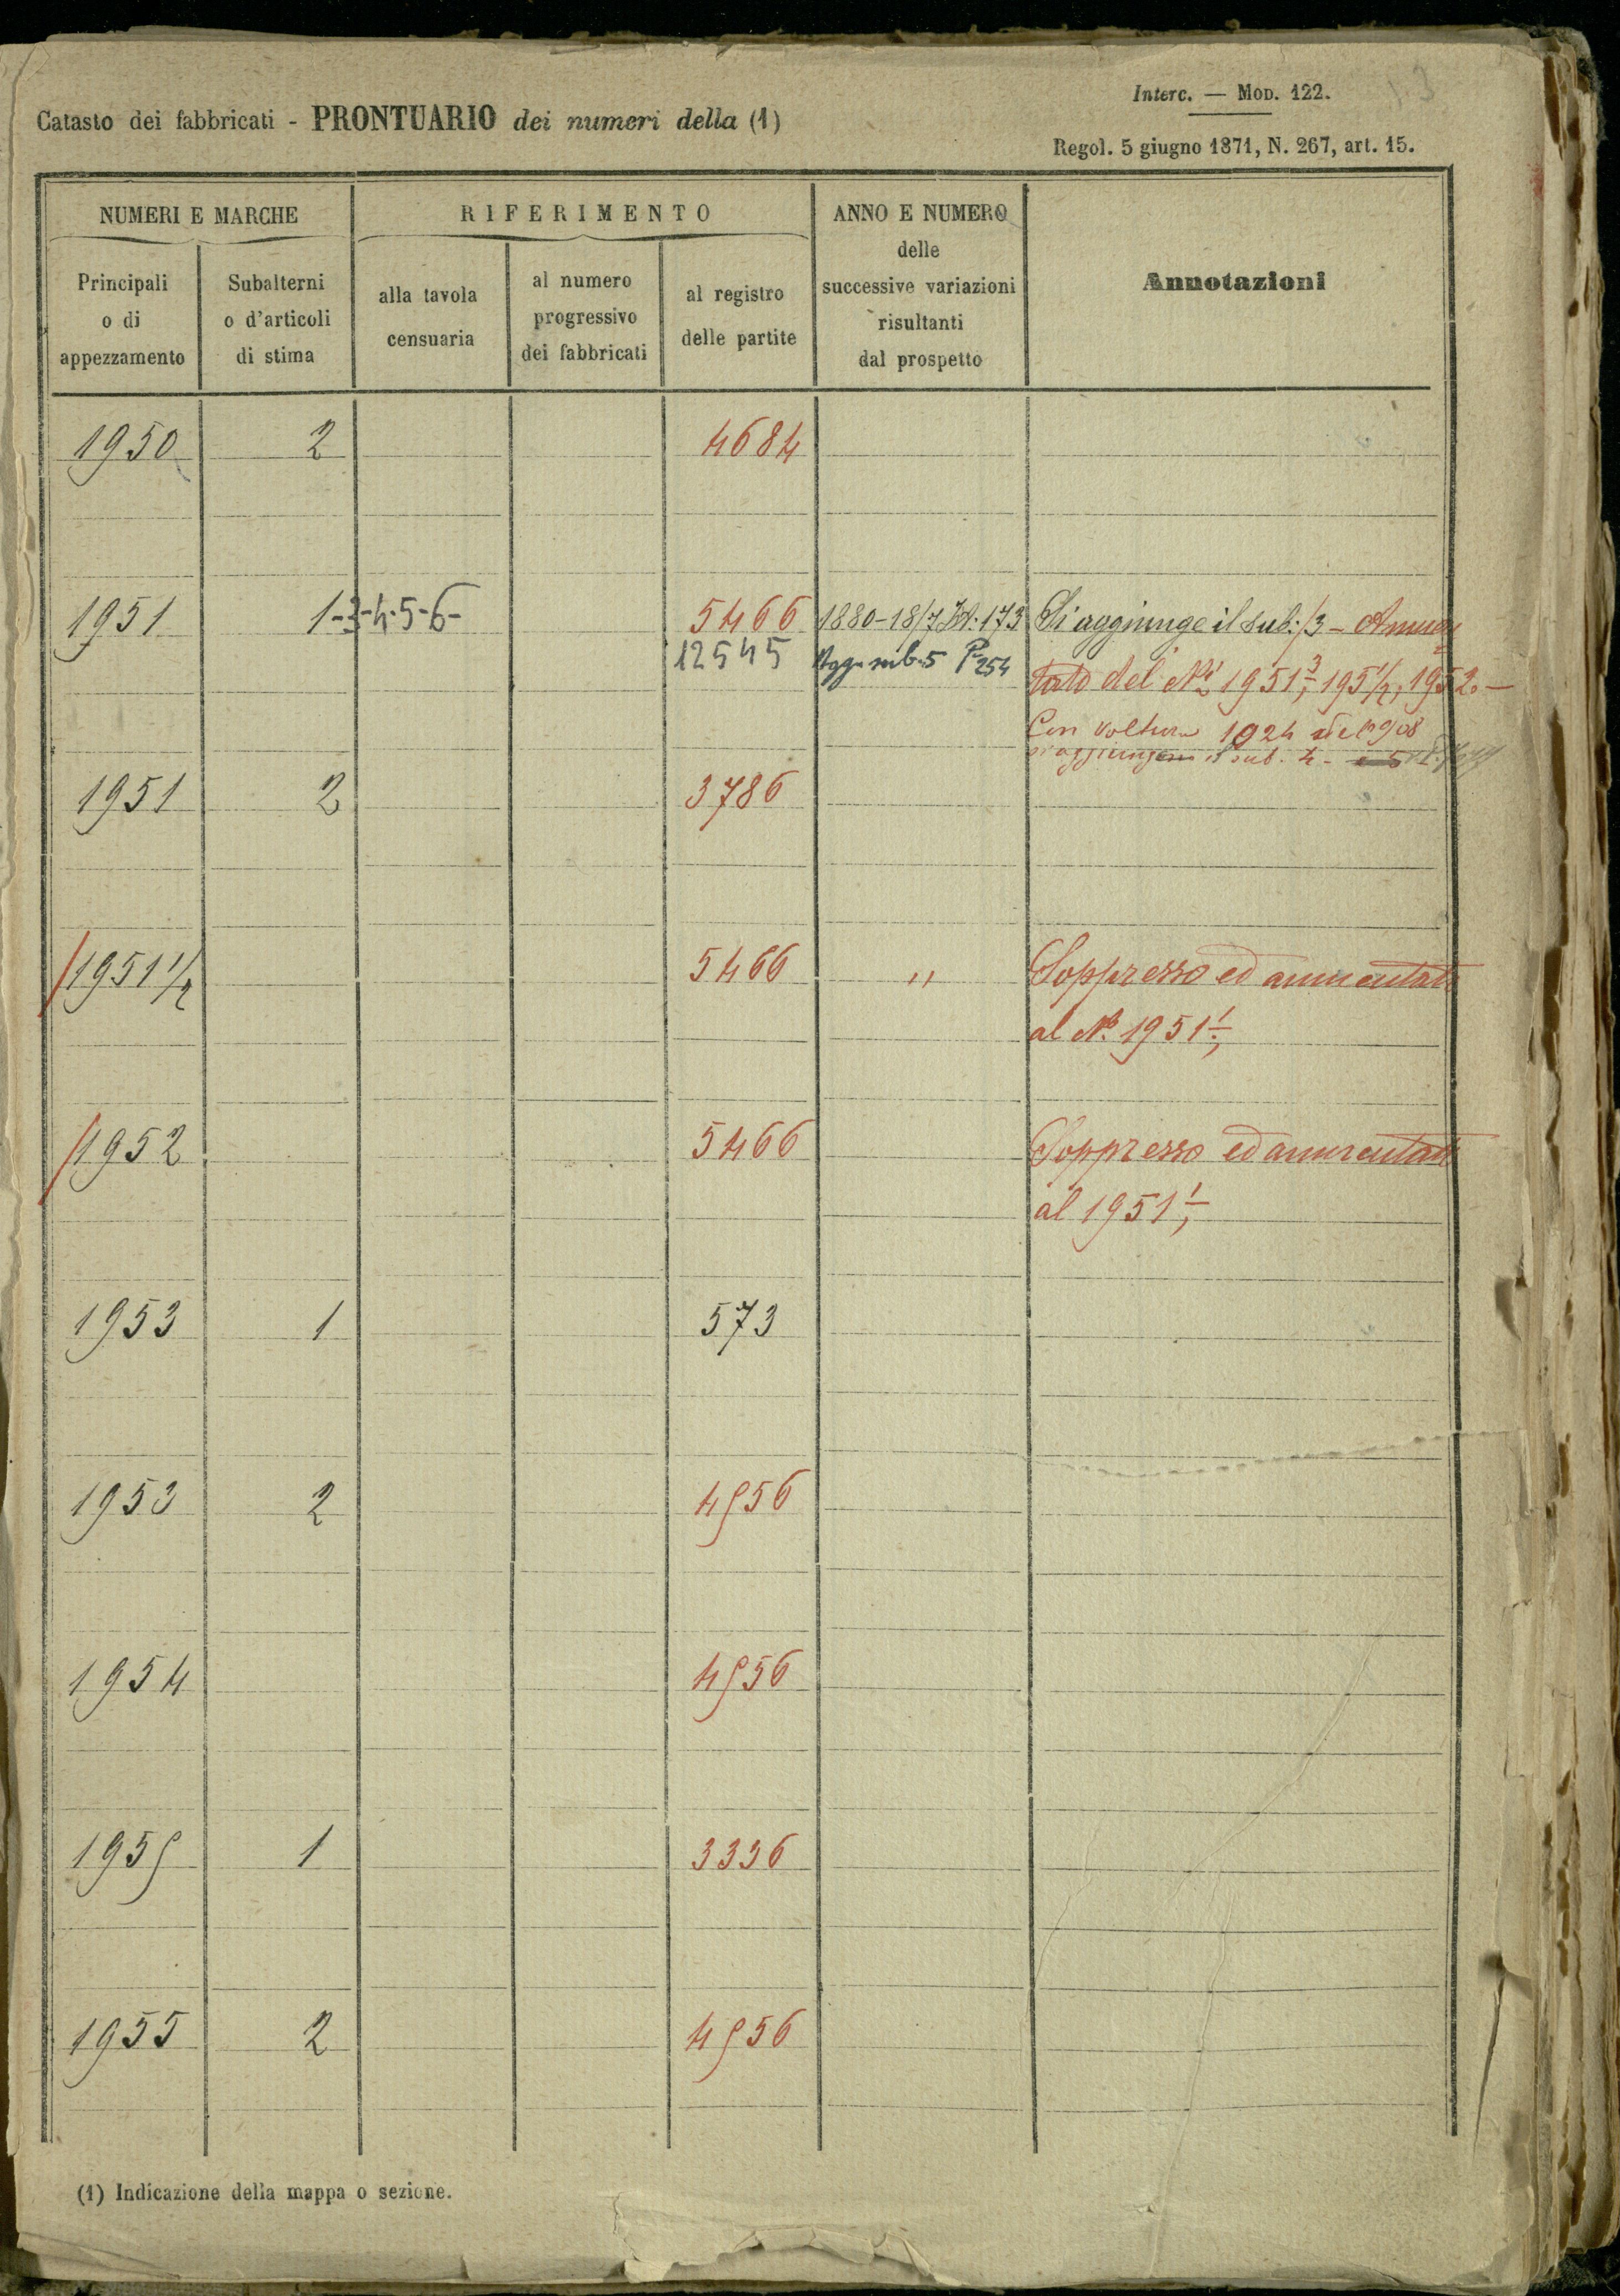 Interc. — Mod. 122.
Catasto dei fabbricati - PRONTUARIO dei numeri della (1)
Regol. 5 giugno 1871, N. 267, art. 15.
NUMERI E MARCHE
Principali
o di
appezzamento
Subalterni
o d'articoli
di stima
RIFERIMENTO
alla tavola
censuaria
al numero
progressivo
dei fabbricati
al registro
delle partite
ANNO E NUMERO
delle
successive variazioni
risultanti
dal prospetto
Annotazioni
1950 2 4684
1951 1-3-4-5-6- 5466 1880-18/7 173 Si aggiunge il sub: 3 - Aumen
12545 Agg. sub. 5 P. 254
tato del Ni 1951 3, 1951 1/2, 1952. —
Con voltura 1924 del 1908
si aggiunge il sub. 4 - e 5
1951 2 3786
1951 1/2 5466 " Soppresso ed aumentato
al No. 1951 1
1952 5466 Soppresso ed aumentato
al 1951 1
1953 1 573
1953 2 4956
1954 4956
1955 1 3336
1955 2 4956
(1) Indicazione della mappa o sezione.